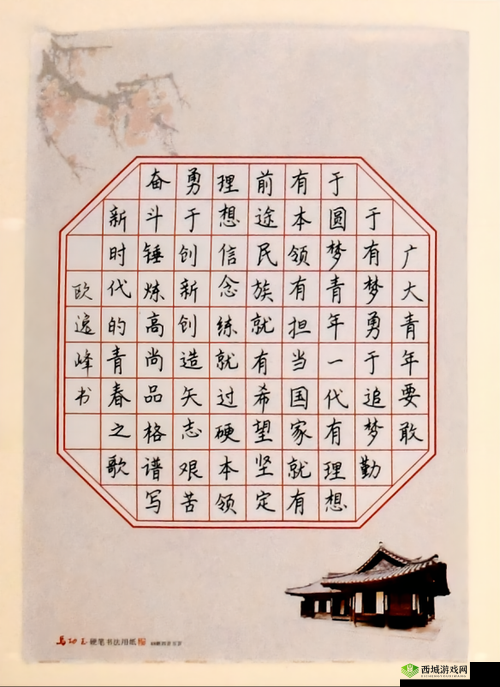 广大青年要敢
于有梦勇于追梦勤
于圆梦青年一代有理想
有本领有担当国家就有
前途民族就有希望坚定
理想信念练就过硬本领
勇于创新创造矢志艰苦
奋斗锤炼高尚品格谱写
新时代的青春之歌
欧逸峰书
硬笔书法用纸
西城游戏网